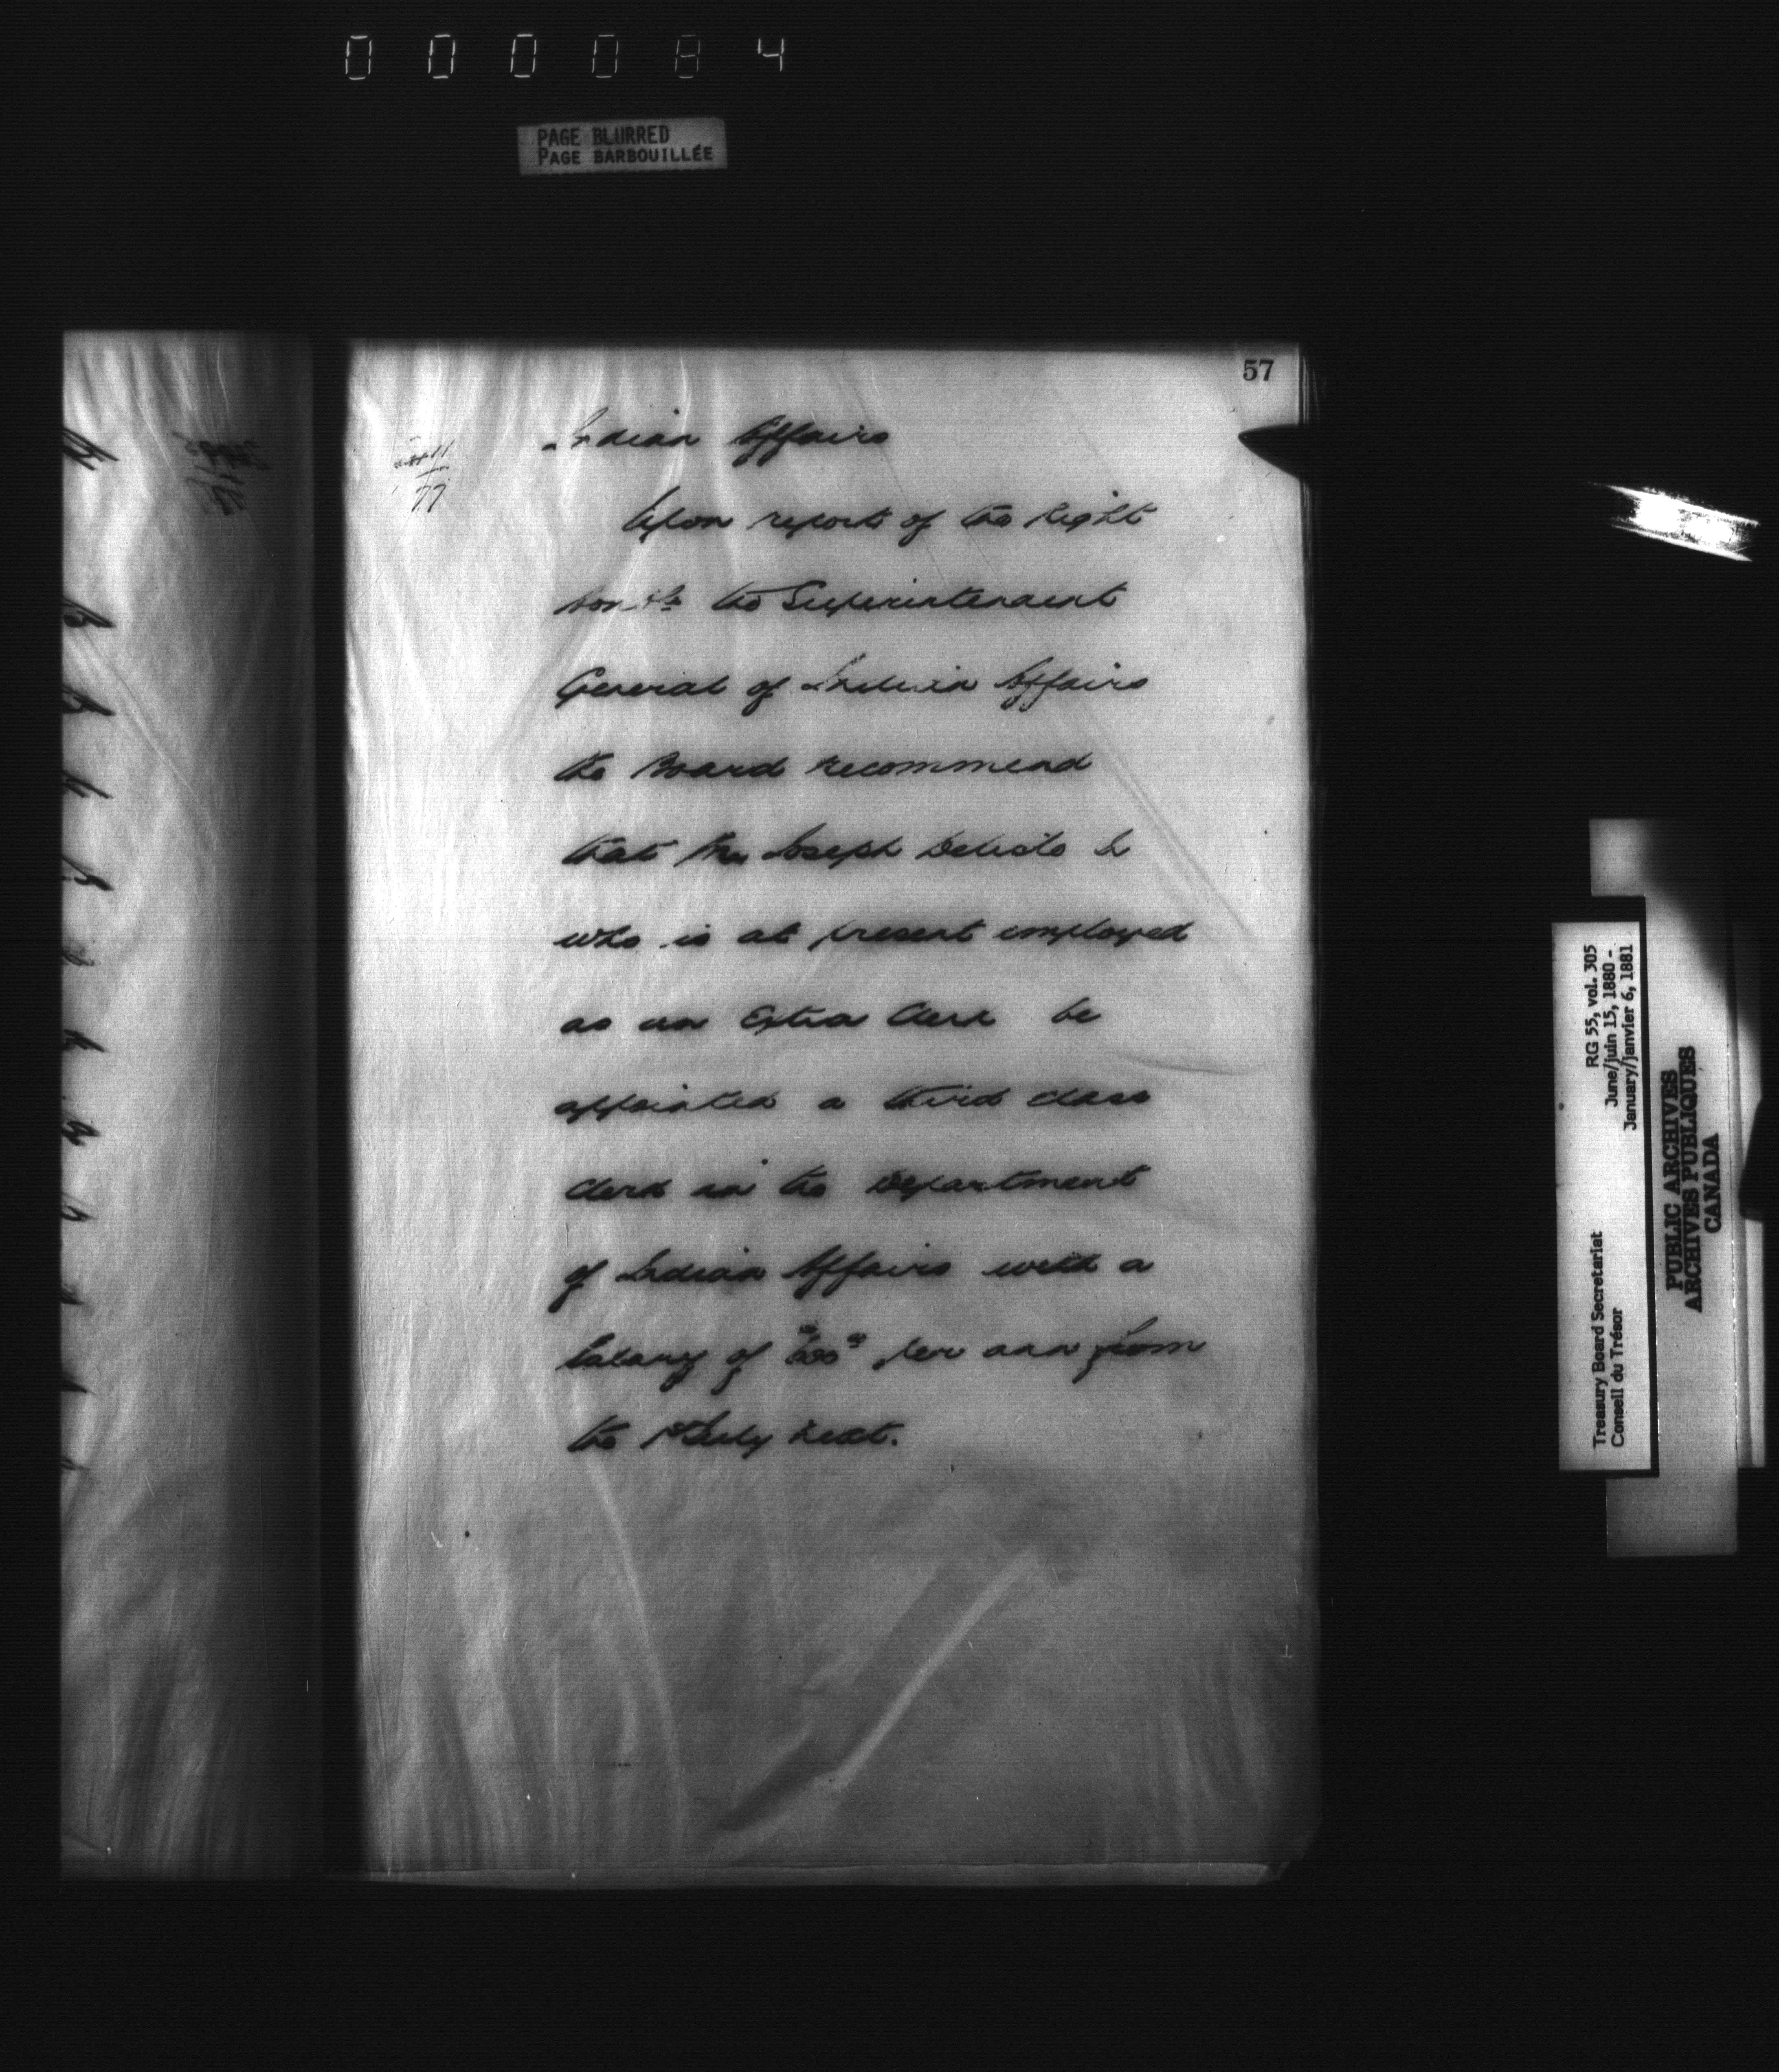 000084
PAGE BLURRED
PAGE BARBOUILLÉE
57
Indian Affairs
77
Upon report of the Right
Honble the Superintendent
General of Indian Affairs
the Board recommend
that Mr Joseph Delisle
who is at present employed
as an Extra Clerk be
appointed a third class
Clerk in the Department
of Indian Affairs with a
Salary of per ann from
the 1st July next.
RG 55, vol. 305
June/juin 15, 1880 -
January/janvier 6, 1881
Treasury Board Secretariat
Conseil du Trésor
PUBLIC ARCHIVES
ARCHIVES PUBLIQUES
CANADA